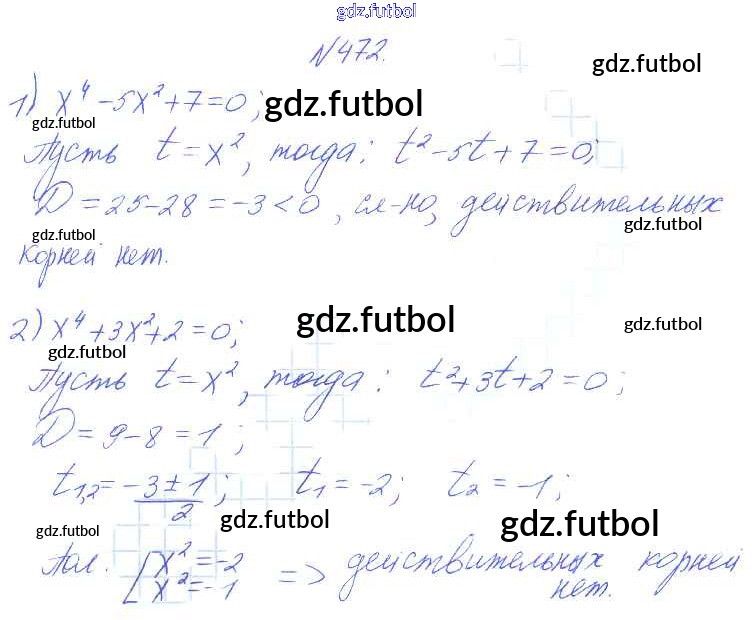 gdz.futbol
№472.
gdz.futbol
1) x⁴ - 5x² + 7 = 0;
gdz.futbol
gdz.futbol
Пусть t = x², тогда: t² - 5t + 7 = 0;
D = 25 - 28 = -3 < 0, сл-но, действительных
gdz.futbol
gdz.futbol
корней нет.
2) x⁴ + 3x² + 2 = 0;
gdz.futbol
gdz.futbol
gdz.futbol
Пусть t = x², тогда: t² + 3t + 2 = 0;
D = 9 - 8 = 1;
t₁,₂ = (-3 ± 1)/2; t₁ = -2; t₂ = -1;
gdz.futbol
gdz.futbol
gdz.futbol
Пол. [x² = -2 => действительных корней
x² = -1 нет.